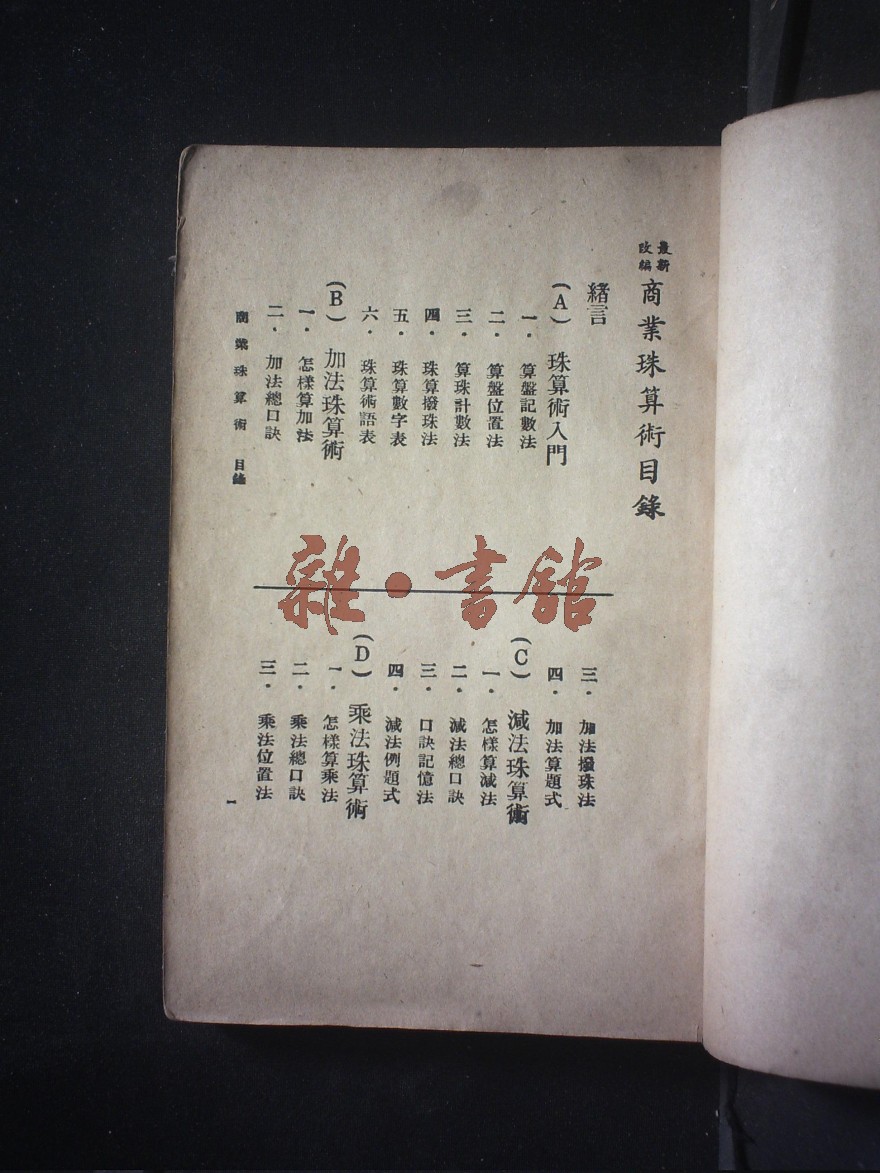 最新改編 商業珠算術目錄
緒言
(A) 珠算術入門
一・算盤記數法
二・算盤位置法
三・算珠計數法
四・珠算撥珠法
五・珠算數字表
六・珠算術語表
(B) 加法珠算術
一・怎樣算加法
二・加法總口訣
三・加法撥珠法
四・加法算題式
(C) 減法珠算術
一・怎樣算減法
二・減法總口訣
三・口訣記憶法
四・減法例題式
(D) 乘法珠算術
一・怎樣算乘法
二・乘法總口訣
三・乘法位置法
商業珠算術 目錄
一
雜・書館